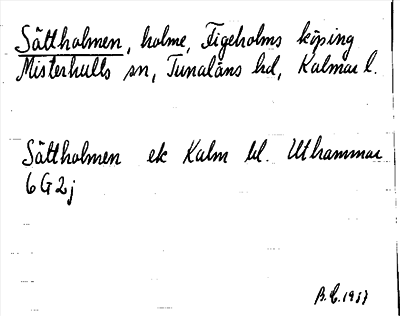 Sättholmen, holme, Figeholms köping
Misterhults sn, Tunaläns hd, Kalmar l.
Sättholmen ek Kalm bl. Uthammar
6G2j
B.C. 1937